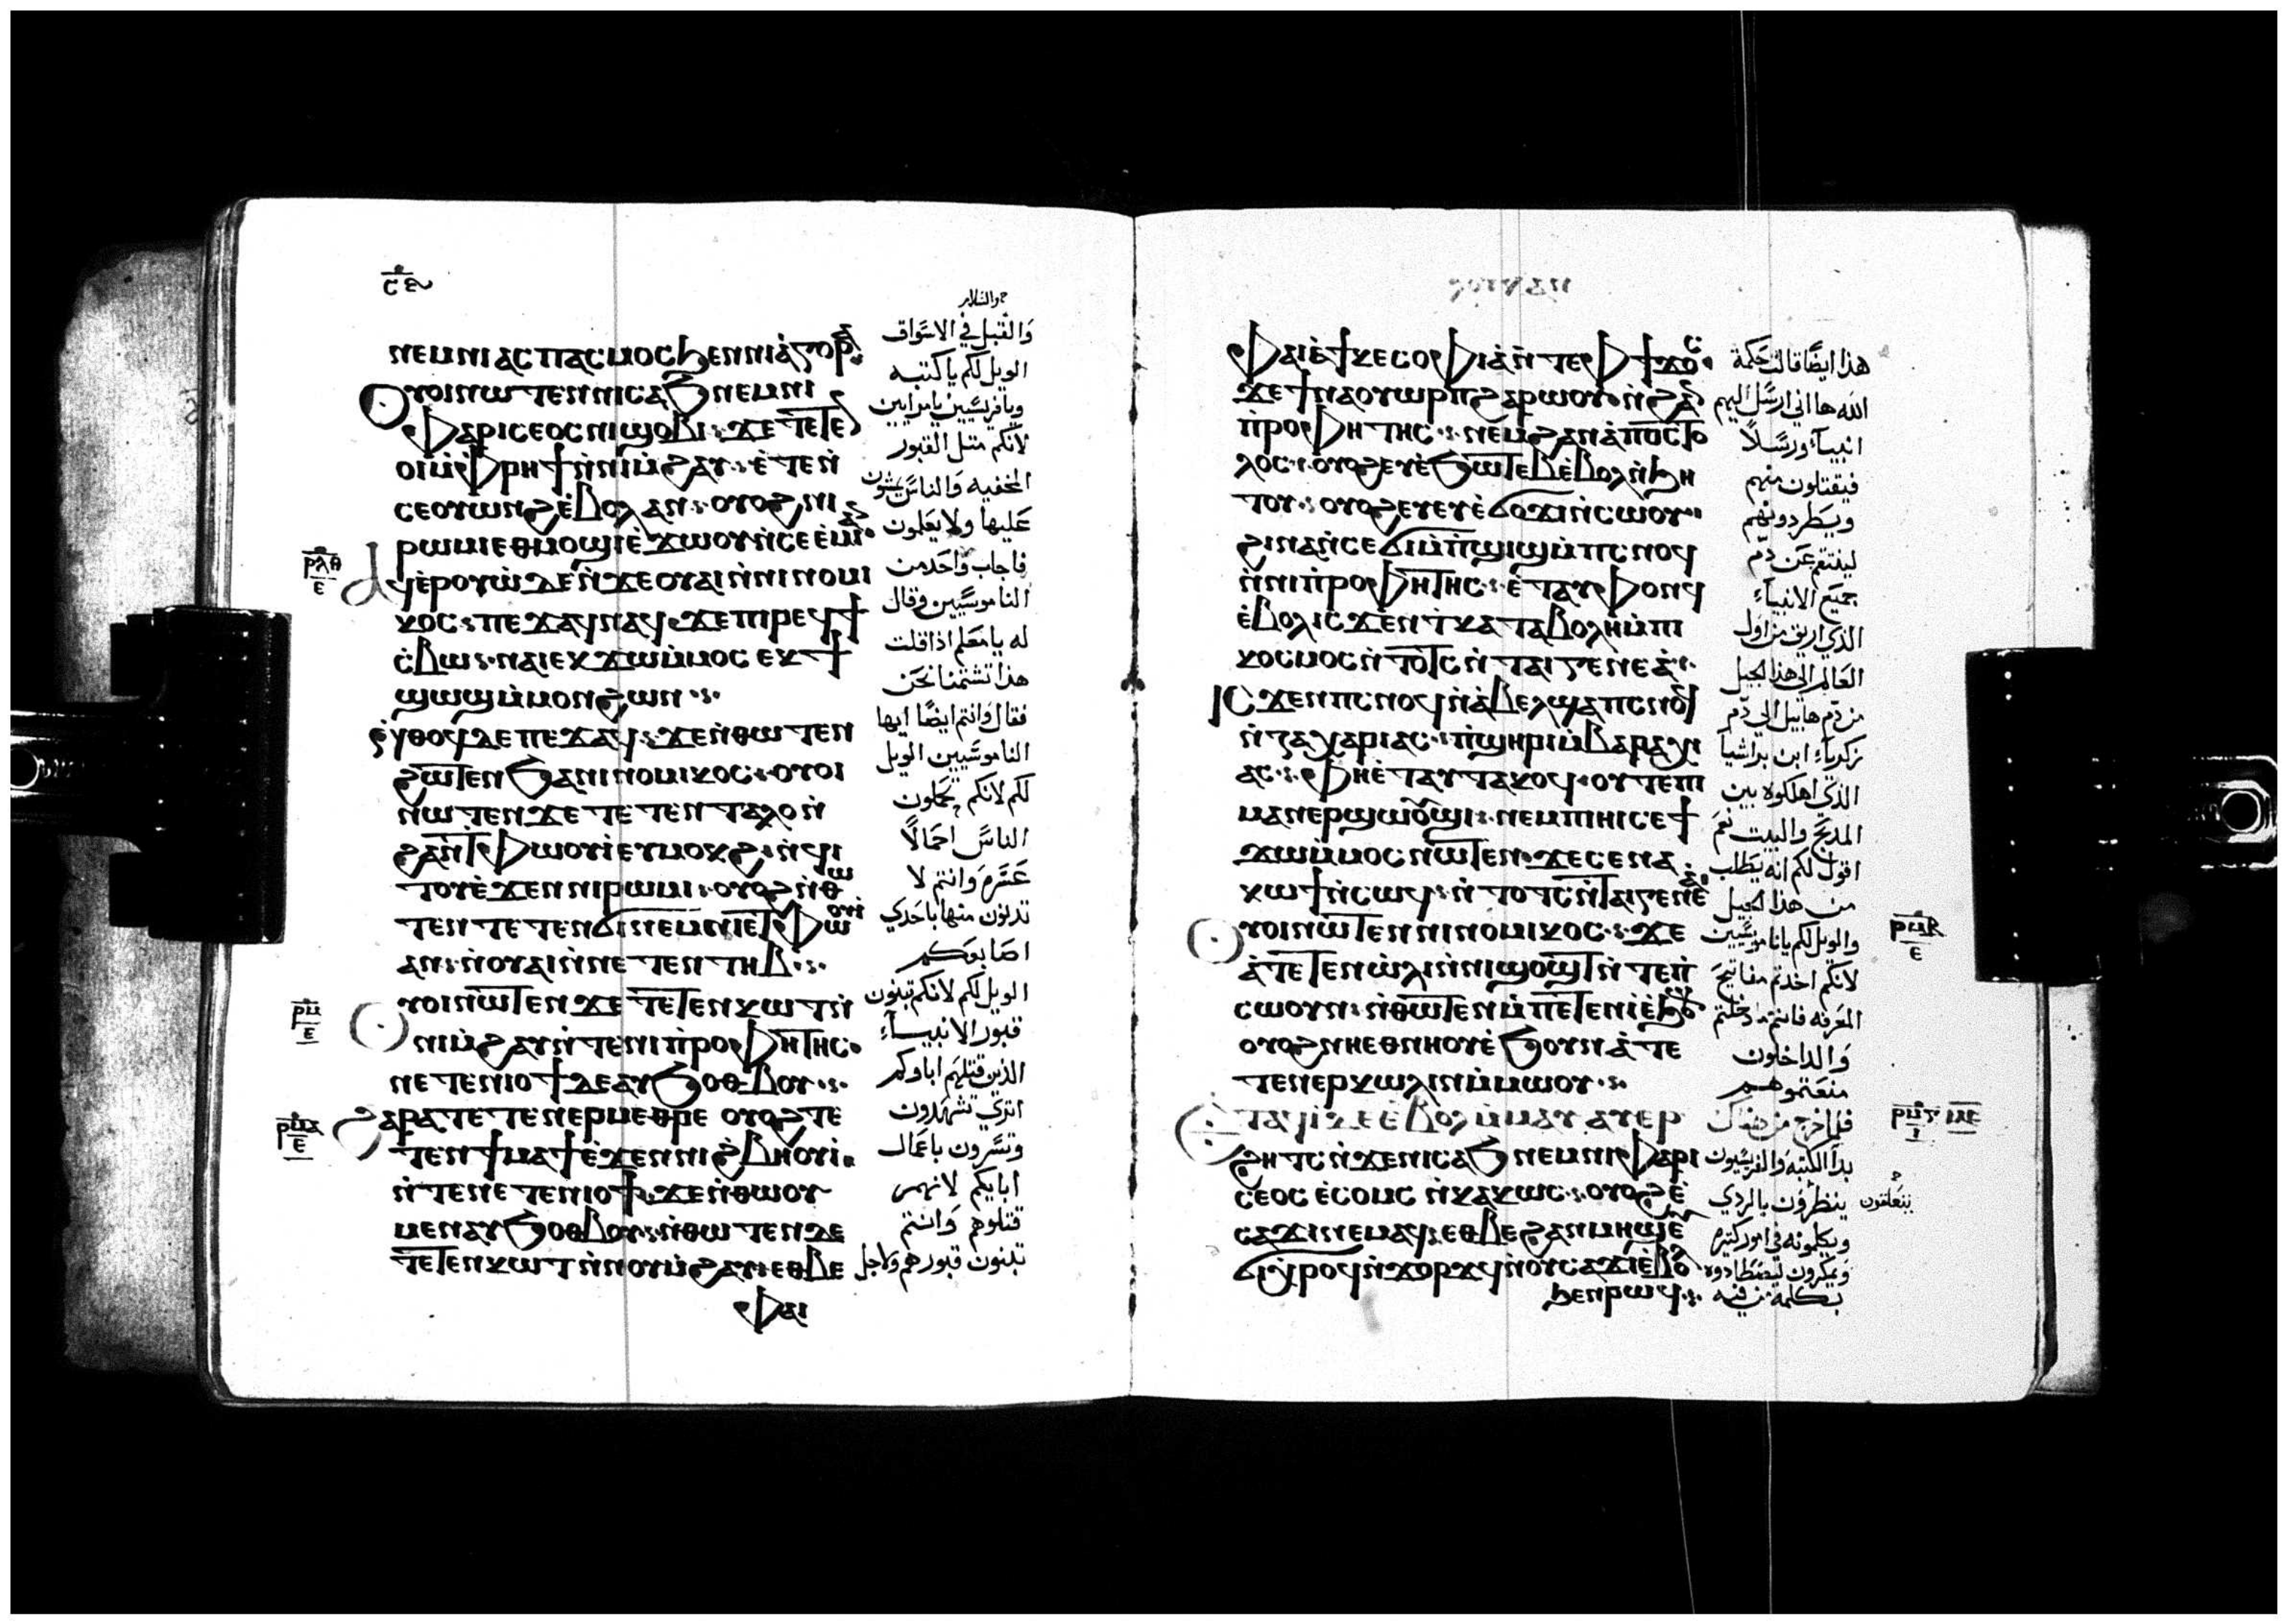 ⲛⲉⲙⲛⲓⲁⲥⲡⲁⲥⲙⲟⲥϧⲉⲛⲛⲓⲁⲅⲟⲣⲁ
ⲟⲩⲟⲓⲛⲱⲧⲉⲛⲛⲓⲥⲁϧⲛⲉⲙⲛⲓ
ⲫⲁⲣⲓⲥⲉⲟⲥⲛⲓϣⲟⲃⲓ: ϫⲉⲧⲉⲧⲉⲛ
ⲟⲓⲙ̀ⲫⲣⲏϯⲛ̀ⲛⲓⲙ̀ϩⲁⲩ: ⲉ̀ⲧⲉⲛ̀
ⲥⲉⲟⲩⲱⲛϩⲉ̀ⲃⲟⲗⲁⲛ: ⲟⲩⲟϩⲛⲓ
ⲣⲱⲙⲓⲉⲑⲙⲟϣⲓⲉ̀ϫⲱⲟⲩⲛ̀ⲥⲉⲉ̀ⲙⲓⲁⲛ
ⲁϥⲉⲣⲟⲩⲱ̀ⲇⲉⲛ̀ϫⲉⲟⲩⲁⲓⲛ̀ⲛⲓⲛⲟⲙⲓ
ⲕⲟⲥ: ⲡⲉϫⲁϥⲛⲁϥ: ϫⲉⲡⲓⲣⲉϥϯ
ⲥ̀ⲃⲱ: ⲛⲁⲓⲉⲕϫⲱⲙ̀ⲙⲟⲥ ⲉⲕϯ
ϣⲱϣⲙ̀ⲙⲟⲛϩⲱⲛ:
ⲛ̀ⲑⲟϥⲇⲉⲡⲉϫⲁϥ: ϫⲉⲛ̀ⲑⲱⲧⲉⲛ
ϩⲱⲧⲉⲛϧⲁⲛⲓⲛⲟⲙⲓⲕⲟⲥ: ⲟⲩⲟⲓ
ⲛⲱⲧⲉⲛϫⲉⲧⲉⲧⲉⲛⲧⲁⲗⲟⲛ̀
ϩⲁⲛⲉⲧⲫⲱⲟⲩⲓ̀ⲉⲩⲙⲟⲕϩ: ⲛ̀ϥⲓ
ⲧⲟⲩⲉ̀ϫⲉⲛⲛⲓⲣⲱⲙⲓ: ⲟⲩⲟϩⲛ̀ⲑⲱ
ⲧⲉⲛⲧⲉⲧⲉⲛϭⲓⲛⲉⲙⲛⲓⲉⲧⲫⲱⲟⲩⲓ̀
ⲁⲛ: ⲛ̀ⲟⲩⲁⲓⲛ̀ⲛⲉⲧⲉⲛⲧⲏⲃ:
ⲟⲩⲟⲓⲛⲱⲧⲉⲛϫⲉⲧⲉⲧⲉⲛⲕⲱⲧⲛ̀
ⲛⲓⲙ̀ϩⲁⲩⲛ̀ⲧⲉⲛⲓⲡ̀ⲣⲟⲫⲏⲧⲏⲥ:
ⲛⲉⲧⲉⲛⲓⲟϯⲇⲉⲁⲩϧⲟⲑⲃⲟⲩ:
ϩⲁⲣⲁⲧⲉⲧⲉⲛⲉⲣⲙⲉⲑⲣⲉ ⲟⲩⲟϩⲧⲉ
ⲧⲉⲛϯⲙⲁϯⲉ̀ϫⲉⲛⲛⲓϩ̀ⲃⲏⲟⲩⲓ̀:
ⲛ̀ⲧⲉⲛⲉⲧⲉⲛⲓⲟϯ: ϫⲉⲛ̀ⲑⲱⲟⲩ
ⲙⲉⲛⲁⲩϧⲟⲑⲃⲟⲩ: ⲛ̀ⲑⲱⲧⲉⲛⲇⲉ
ⲧⲉⲧⲉⲛⲕⲱⲧⲛ̀ⲛⲟⲩⲙ̀ϩⲁⲩ: ⲉⲑⲃⲉ
ⲫⲁⲓ
والسلام
والقبل في الاسواق
الويل لكم يا كتبه
ويافريسيين يا مرايين
لانكم مثل القبور
المخفيه والناس يمشون
عليها ولا يعلمون
فاجاب واحد من
الناموسيين وقال
له يا معلم اذا قلت
هذا تشتمنا نحن
فقال وانتم ايضا ايها
الناموسيين الويل
لكم لانكم تحملون
الناس احمالا
عسره وانتم لا
تدنون منها باحدي
اصابعكم
الويل لكم لانكم تبنون
قبور الانبياء
الذين قتلهم اباوكم
انتم تشهدون
وتسرون باعمال
ابايكم لانهم
قتلوهم وانتم
تبنون قبورهم ولاجل
ⲫⲁⲓⲉ̀ϯⲕⲉⲥⲟⲫⲓⲁⲛ̀ⲧⲉⲫϯϫⲟⲥ
ϫⲉϯⲛⲁⲟⲩⲱⲣⲡϩⲁⲣⲱⲟⲩⲛ̀ϩⲁⲛ
ⲡ̀ⲣⲟⲫⲏⲧⲏⲥ: ⲛⲉⲙϩⲁⲛⲁ̀ⲡⲟⲥⲧⲟ
ⲗⲟⲥ: ⲟⲩⲟϩⲉⲩⲉ̀ϧⲱⲧⲉⲃⲉ̀ⲃⲟⲗⲛ̀ϧⲏ
ⲧⲟⲩ: ⲟⲩⲟϩⲉⲩⲉ̀ϭⲟϫⲓⲛ̀ⲥⲱⲟⲩ
ϩⲓⲛⲁⲛ̀ⲥⲉϭⲓⲙ̀ⲡ̀ϣⲓϣⲙ̀ⲡⲥⲛⲟϥ
ⲛ̀ⲛⲓⲡ̀ⲣⲟⲫⲏⲧⲏⲥ: ⲉ̀ⲧⲁⲩⲫⲟⲛϥ
ⲉ̀ⲃⲟⲗⲓⲥϫⲉⲛⲧ̀ⲕⲁⲧⲁⲃⲟⲗⲏⲙ̀ⲡⲓ
ⲕⲟⲥⲙⲟⲥⲛ̀ⲧⲟⲧⲥⲛ̀ⲧⲁⲓⲅⲉⲛⲉⲁ̀:
ⲓⲥϫⲉⲛⲡⲥⲛⲟϥⲛ̀ⲁ̀ⲃⲉⲗϣⲁⲡⲥⲛⲟϥ
ⲛ̀ⲍⲁⲭⲁⲣⲓⲁⲥ: ⲡ̀ϣⲏⲣⲓⲙ̀ⲃⲁⲣⲁⲭⲓ
ⲁⲥ: ⲫⲏⲉ̀ⲧⲁⲩⲧⲁⲕⲟϥ: ⲟⲩⲧⲉⲡⲓ
ⲙⲁⲛⲉⲣϣⲱⲟⲩϣⲓ: ⲛⲉⲙⲡⲓⲏⲓⲥⲉϯ
ϫⲱⲙ̀ⲙⲟⲥⲛⲱⲧⲉⲛ: ϫⲉⲥⲉⲛⲁ
ⲕⲱϯⲛ̀ⲥⲱϥ: ⲛ̀ⲧⲟⲧⲥⲛ̀ⲧⲁⲓⲅⲉⲛⲉⲁ̀
ⲟⲩⲟⲓⲛⲱⲧⲉⲛⲛⲓⲛⲟⲙⲓⲕⲟⲥ: ϫⲉ
ⲁ̀ⲧⲉⲧⲉⲛⲱ̀ⲗⲓⲛ̀ⲛⲓϣⲟϣⲧⲛ̀ⲧⲉⲡ̀
ⲥⲱⲟⲩⲛ: ⲛ̀ⲑⲱⲧⲉⲛⲙ̀ⲡⲉⲧⲉⲛⲓ̀ⲉ̀ϧⲟⲩⲛ
ⲟⲩⲟϩⲛⲏⲉⲑⲛⲏⲟⲩⲉ̀ϧⲟⲩⲛⲁ̀ⲧⲉ
ⲧⲉⲛⲉⲣⲕⲱⲗⲓⲛⲙ̀ⲙⲱⲟⲩ:
ⲉⲧⲁϥⲓ̀ⲇⲉⲉ̀ⲃⲟⲗⲙ̀ⲙⲁⲩ ⲁⲩⲉⲣ
ϩⲏⲧⲥⲛ̀ϫⲉⲛⲓⲥⲁϧⲛⲉⲙⲛⲓⲫⲁⲣⲓ
ⲥⲉⲟⲥ ⲉ̀ⲥⲟⲙⲥ ⲛ̀ⲕⲁⲕⲱⲥ: ⲟⲩⲟϩⲉ̀
ⲥⲁϫⲓⲛⲉⲙⲁϥ: ⲉⲑⲃⲉϩⲁⲛⲙⲏϣ
ⲉ̀ϭⲓⲭ̀ⲣⲟϥⲛ̀ϫⲟⲣϫϥⲛ̀ⲟⲩⲥⲁϫⲓⲉ̀ⲃⲟⲗ
ϧⲉⲛⲣⲱϥ:
هذا ايضا قالت حكمة
الله ها اني ارسل اليهم
انبياء ورسلا
فيقتلون منهم
ويطردونهم
لينتقم عن دم
جميع الانبياء
الذي اريق من اول
العالم الي هذا الجيل
من دم هابيل الي دم
زكرياء ابن براشيا
الذي اهلكوه بين
المذبح والبيت نعم
اقول لكم انه يطلب
من هذا الجيل
والويل لكم يا ناموسيين
لانكم اخذتم مفاتيح
المعرفه فانتم ما دخلتم
والداخلون
منعتموهم
فلما خرج من هناك
بدا الكتبه والفريسيون
ينظرون بالردي
ويكلمونه في امور كثيره
ويمكرون ليصطادوه
بكلمة من فيه